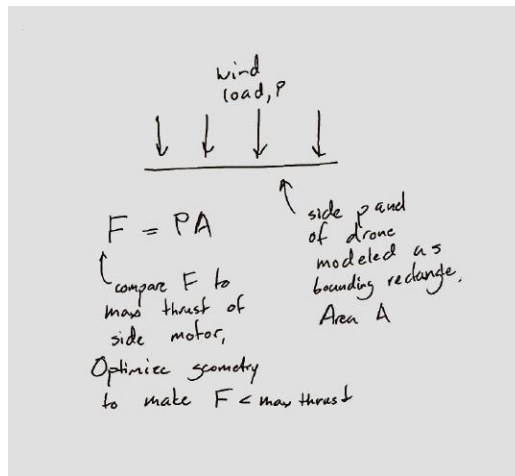 wind
load, P
F = PA
side pand
of drone
modeled as
bounding rectange.
Area A
compare F to
max thrust of
side motor,
Optimize geometry
to make F < max thrust